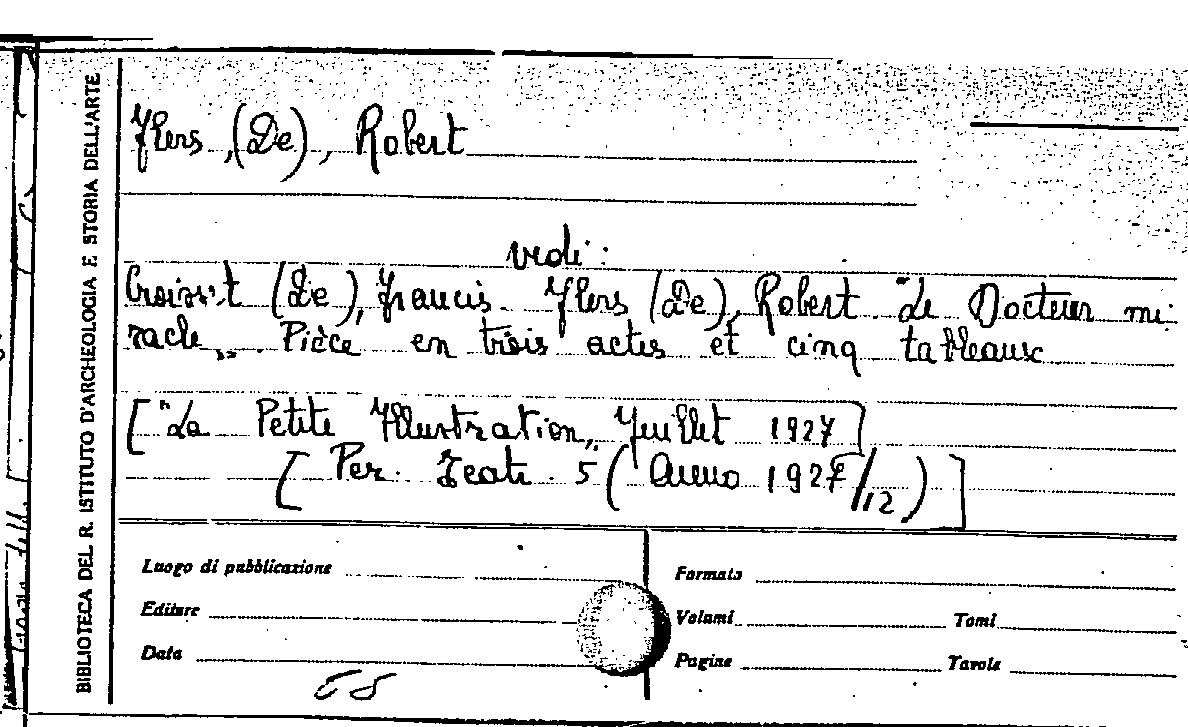 BIBLIOTECA DEL R. ISTITUTO D'ARCHEOLOGIA E STORIA DELL'ARTE
Flers, (De), Robert
vedi:
Croisset (De), Francis. Flers (De), Robert. "Le Docteur mi-
racle". Pièce en trois actes et cinq tableaux
["La Petite Illustration", Juillet 1927]
[Per. Teatr. 5 (Anno 1927/12)]
Luogo di pubblicazione
Formato
Editore
Volumi Tomi
Data
Pagine Tavole